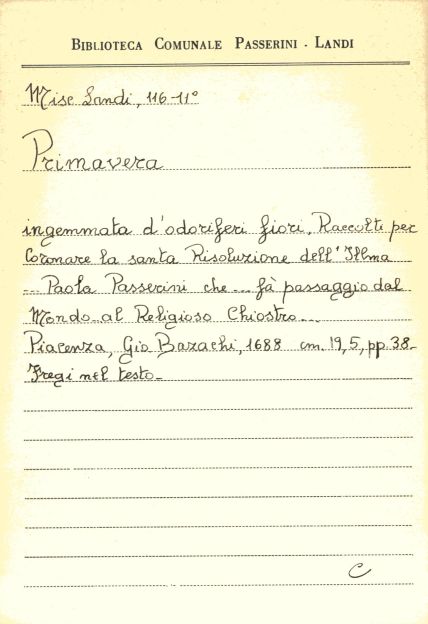 BIBLIOTECA COMUNALE PASSERINI - LANDI
Misc Landi, 116-11°
Primavera
ingemmata d'odoriferi fiori. Raccolti per
Coronare la santa Risoluzione dell'Illma
... Paola Passerini che ... fà passaggio dal
Mondo al Religioso Chiostro...
Piacenza, Gio Bazachi, 1688 cm. 19,5, pp. 38-
Fregi nel testo-
C